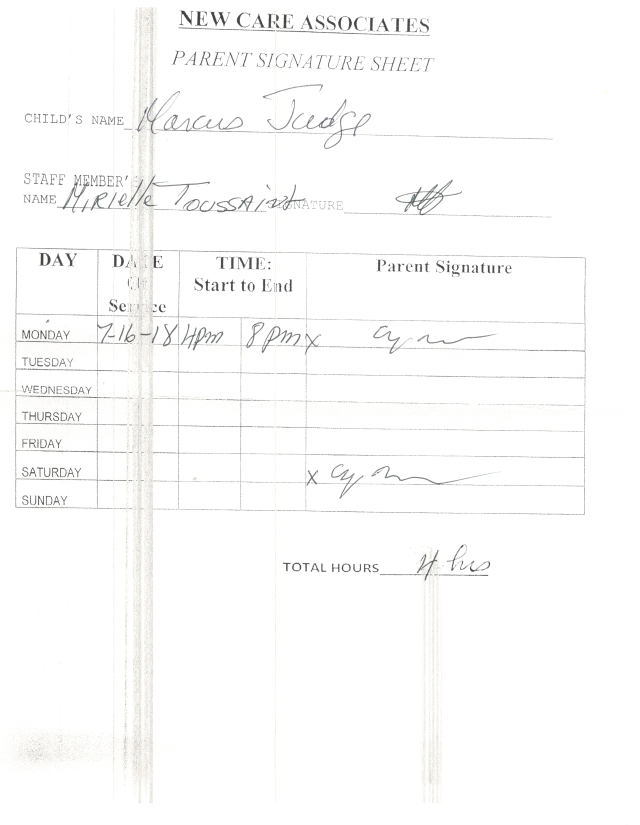 NEW CARE ASSOCIATES
PARENT SIGNATURE SHEET
CHILD'S NAME Marcus Judge
STAFF MEMBER'
NAME Mirielle Toussaint SIGNATURE
DAY DATE Of Service TIME: Start to End Parent Signature
MONDAY 7-16-18 4pm 8pm x
TUESDAY
WEDNESDAY
THURSDAY
FRIDAY
SATURDAY x
SUNDAY
TOTAL HOURS 4 hrs